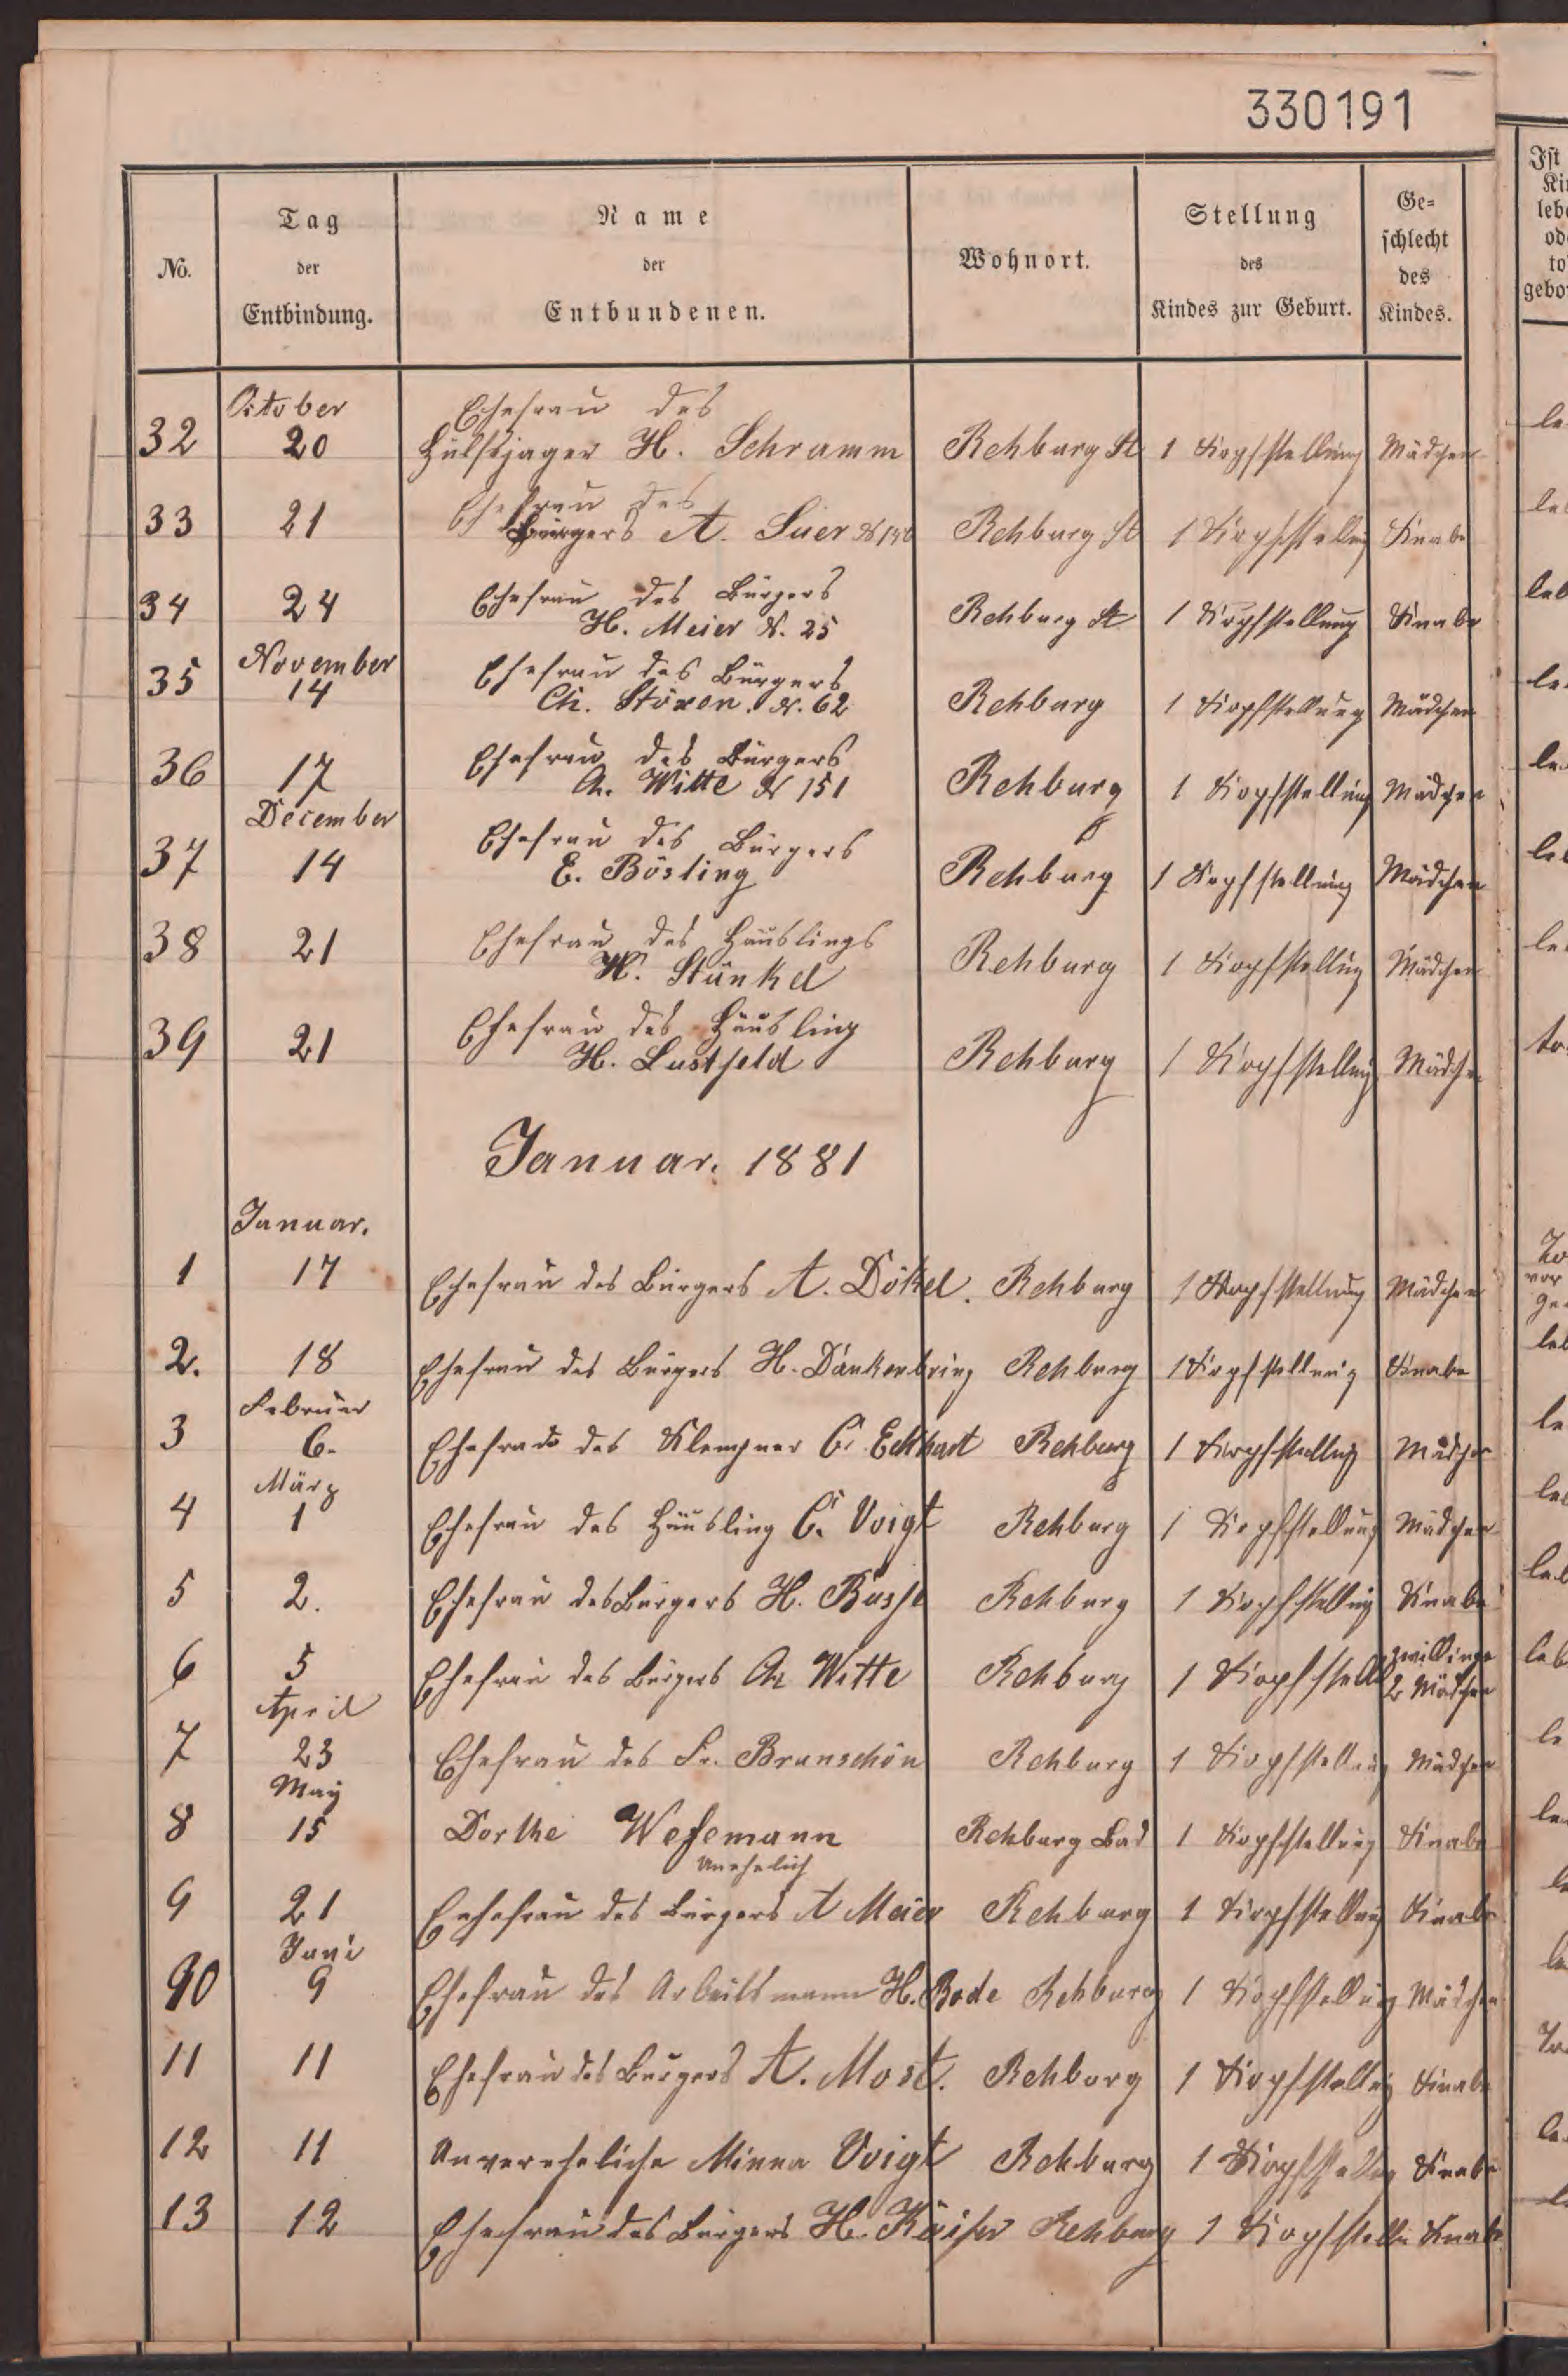 330191
No.
Tag der Entbindung.
Name der Entbundenen.
Wohnort.
Stellung des Kindes zur Geburt.
Ge=schlecht des Kindes.
October
Ehefrau des
32 20 Hülfsjager H. Schramm Rehburg St 1 Kopfstellung Mädchen
Ehefrau des
33 21 Bürgers A. Suer Rehburg St 1 Kopfstellung Knabe
34 24 Ehefrau des Bürgers Rehburg St 1 Kopfstellung Knabe
H. Meier N. 25
November
35 14 Ehefrau des Bürgers Rehburg 1 Kopfstellung Mädchen
Ch. Stöxen. N. 62
36 17 Ehefrau des Bürgers Rehburg 1 Kopfstellung Mädchen
Ch. Witte N 151
December
37 14 Ehefrau des Bürgers Rehburg 1 Kopfstellung Mädchen
E. Bösling
38 21 Ehefrau des Häuslings Rehburg 1 Kopfstellung Mädchen
H. Stünkel
39 21 Ehefrau des Häusling Rehburg 1 Kopfstellung Mädchen
H. Lustfeld
Januar. 1881
Januar.
1 17 Ehefrau des Bürgers A. Dökel. Rehburg 1 Kopfstellung Mädchen
2. 18 Ehefrau des Bürgers H. Dankenbring Rehburg 1 Kopfstellung Knabe
Februar
3 6. Ehefrau des Klempner C. Eckhart Rehburg 1 Kopfstellung Mädchen
März
4 1 Ehefrau des Häusling C. Voigt Rehburg 1 Kopfstellung Mädchen
5 2. Ehefrau des Bürgers H. Busse Rehburg 1 Kopfstellung Knabe
6 5 Ehefrau des Bürgers Ch Witte Rehburg 1 Kopfstell zwillinge 2 Mädchen
April
7 23 Ehefrau des Fr. Brunschön Rehburg 1 Kopfstellung Mädchen
May
8 15 Dorthe Wesemann Rehburg Bad 1 Kopfstellung Knabe
Unehelich
9 21 Eehefrau des Bürgers A Meier Rehburg 1 Kopfstellung Knabe
Juni
10 9 Ehefrau des Arbeitsmann H. Bode Rehburg 1 Kopfstellung Mädchen
11 11 Ehefrau des Bürgers A. Most. Rehborg 1 Kopfstellung Knabe
12 11 Unvereheliche Minna Voigt Rehburg 1 Kopfstellung Knabe
13 12 Ehefrau des Bürgers H. Kaiser Rehburg 1 Kopfstellu Knabe